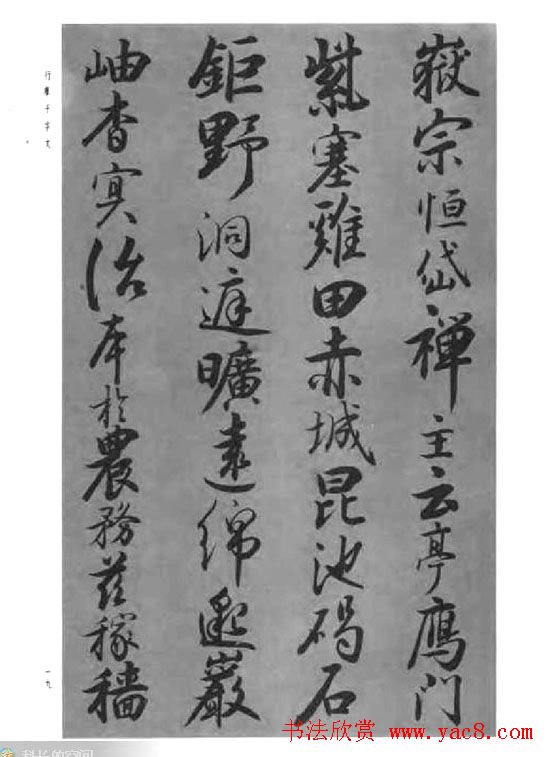 嶽宗恒岱禪主云亭鴈門
紫塞雞田赤城昆池碣石
鉅野洞庭曠遠綿邈巖
岫杳冥治本於農務茲稼穡
行書千字文
一九
书法欣赏 www.yac8.com